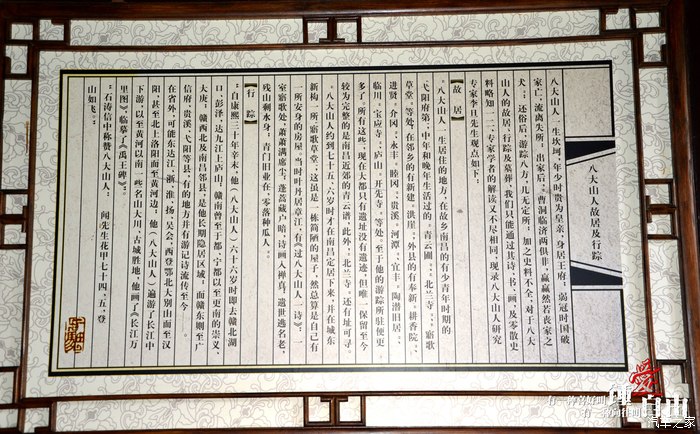 八大山人故居及行踪
八大山人一生坎坷,年少时贵为皇亲,身居王府;弱冠时国破
家亡,流离失所,出家后,曹洞临济两俱非,羸羸然若丧家之
犬;还俗后,游踪八方,几无定所。加之史料不全,对于八大
山人的故居,行踪及墓葬,我们只能通过其诗、书、画,及零散史
料略知一二,专家学者的解读又不尽相同,现录八大山人研究
专家李旦先生观点如下:
【故居】
八大山人一生居住的地方,在故乡南昌的有少青年时期的
弋阳府第,中年和晚年生活过的:青云圃、北兰寺、寤歌
草堂、等处,在邻乡的有新建、洪崖。外县的有奉新、耕香院、
进贤、介冈、永丰、睦冈、贵溪、河潭、宜丰、陶潜旧居、
临川、宝应寺、庐山、开先寺、等处,至于他的游踪所驻便更
多了,所有这些,现在大都只有遗址没有遗迹,但唯一保留至今
较为完整的是南昌近郊的青云谱。此外,北兰寺、还有址可寻
八大山人约到七十五、六岁时才在南昌定居下来,并在城东
新构一所寤歌草堂、这虽是一栋简陋的屋子,然总算是自己有
所安身的房屋,当时叶丹居章江,有《过八大山人》诗:一
室寤歌处,萧萧满席尘,蓬蒿藏户暗,诗画入禅真,遗世逃名老,
残山剩水身,青门旧业在,零落种瓜人。
【行踪】
自康熙三十年辛未,他(八大山人)六十六岁时即去赣北湖
口、彭泽,达九江上庐山,赣南曾至于都、宁都以至更南的崇义、
大庾。赣西北及南昌邻县,是他长期隐居区域;而赣东则至广
信府、贵溪、弋阳等县,有的地方并有游记诗流传至今
在省外,可能东达江、浙、淮、扬、吴会,西登鄂北大别山而至汉
阳,甚至北上洛阳而至黄河边,他(八大山人)遍游了长江中
下游,以至黄河以南一些名山大川、古城胜地,他画了《长江万
里图》,临摹了《禹王碑》。
石涛信中称赞八大山人:闻先生花甲七十四、五,登
山如飞。
爱
自由
有一种喜好叫
有一种向往叫
汽车之家